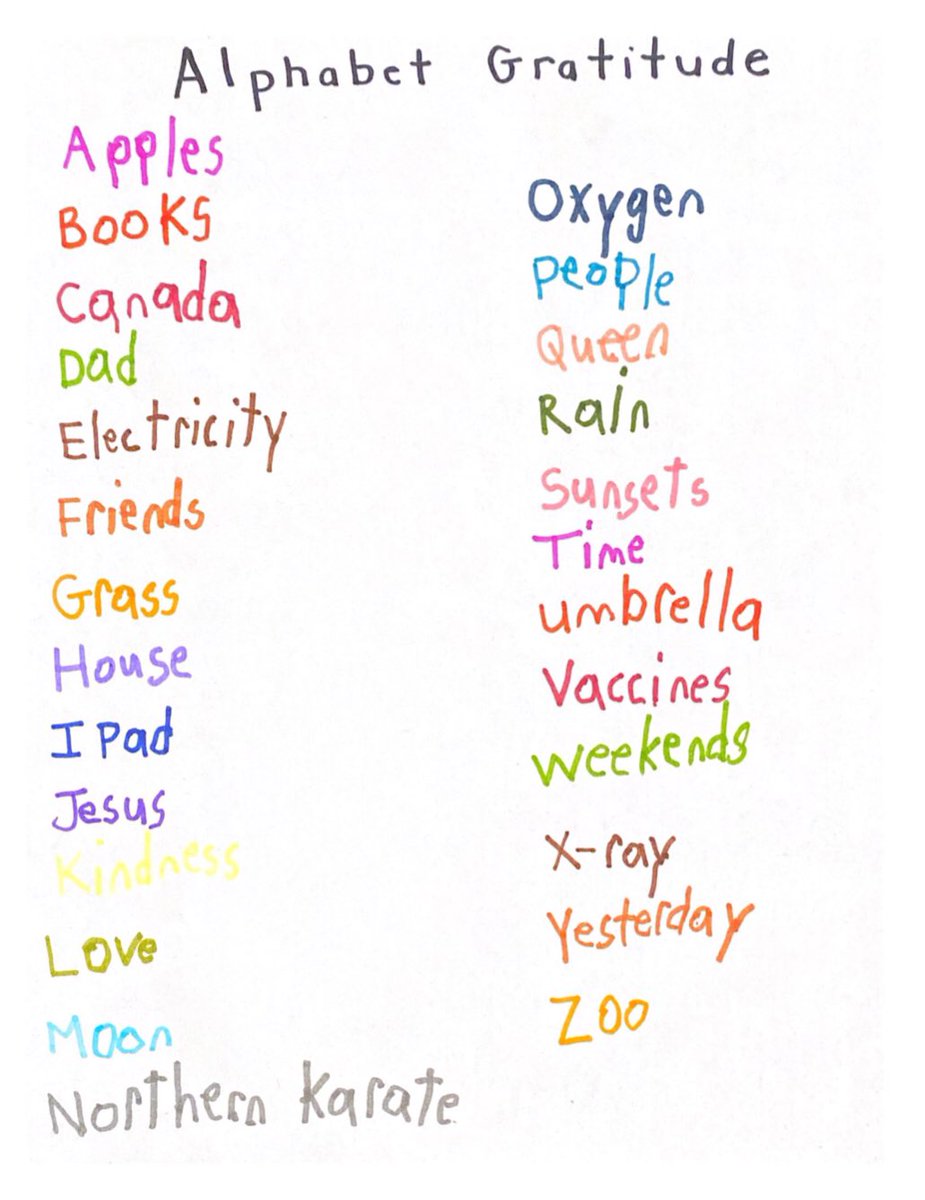 Alphabet Gratitude
Apples
Books
Canada
Dad
Electricity
Friends
Grass
House
I Pad
Jesus
Kindness
Love
Moon
Northern Karate
Oxygen
People
Queen
Rain
Sunsets
Time
umbrella
Vaccines
weekends
X-ray
Yesterday
Zoo